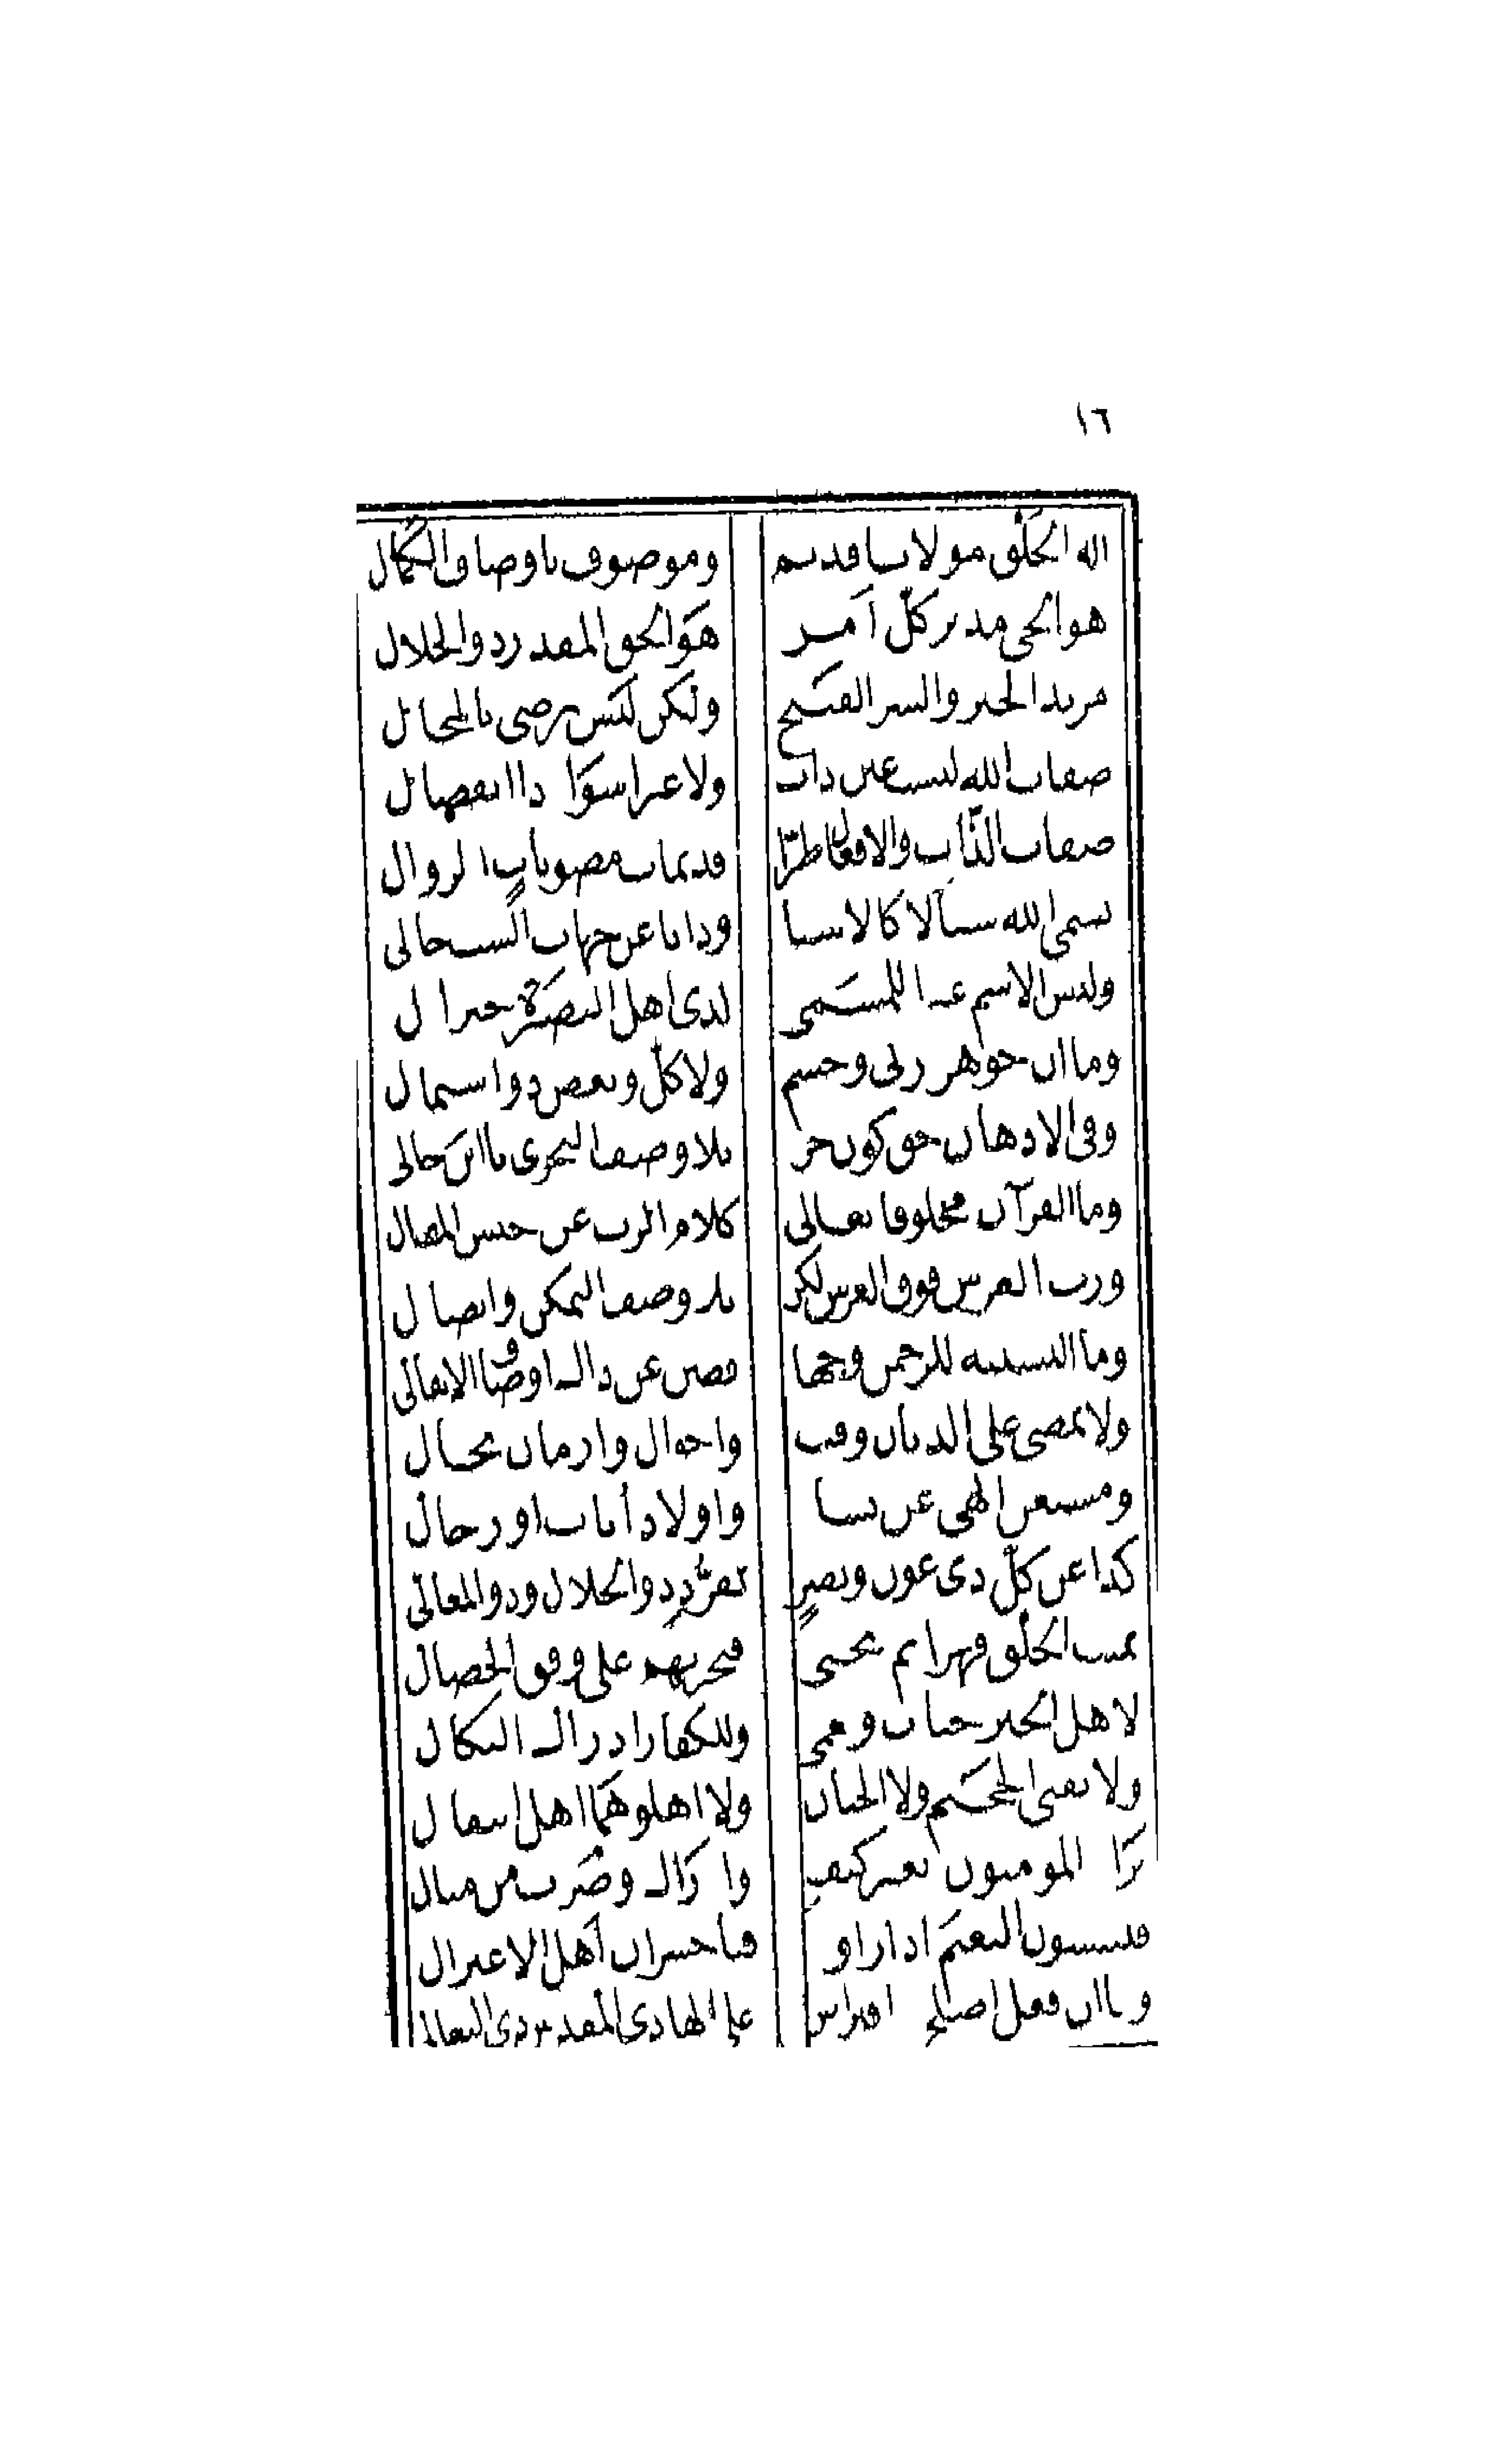 ١٦
اله الخلق مولانا قديم وموصوف باوصاف الكمال
هو الحي مدبر كلّ امر هو الحق المقدر ذو الجلال
مريد الخير والشر القبيح ولكن ليس يرضى بالمحال
صفات الله ليست عين ذات ولا غيرا سوا ذا انفصال
صفات الذّات والافعال طرّا قديمات مصونات الزوال
نسمي الله شيأ لا كالاشيا وذاتا عن جهات الست خالي
وليس الاسم غيرا للمسمى لدى اهل البصيرة خير ال
وما ان جوهر ربي وجسم ولا كلّ وبعض ذو اشتمال
وفي الاذهان حق كون جز بلا وصف التجزى يا ابن خالي
وما القرآن مخلوقا تعالى كلام الرب عن جنس المقال
ورب العرش فوق العرش لكن بلا وصف التمكن واتصال
وما التشبيه للرحمن وجها فصن عن ذاك اوصاف الاهالي
ولا يمضي على الديان وقت واحوال وازمان بحال
ومستغن الهي عن نسا واولاد أناث او رجال
كذا عن كلّ ذي عون ونصرٍ تفرّد ذو الجلال وذو المعالي
يميت الخلق قهرا ثم يحيى فيجزيهم على وفق الخصال
لاهل الخير جنات ونعمى وللكفار ادراك النكال
ولا يفنى الجحيم ولا الجنان ولا اهلوهما اهل انتقال
يرا المومنون بغير كيف وادراك وضرب من مثال
فينسون النعيم اذا راو فيا خسران أهل الاعتزال
وما ان فعل اصلح افتراض على الهادي المقدس ذي التعالي